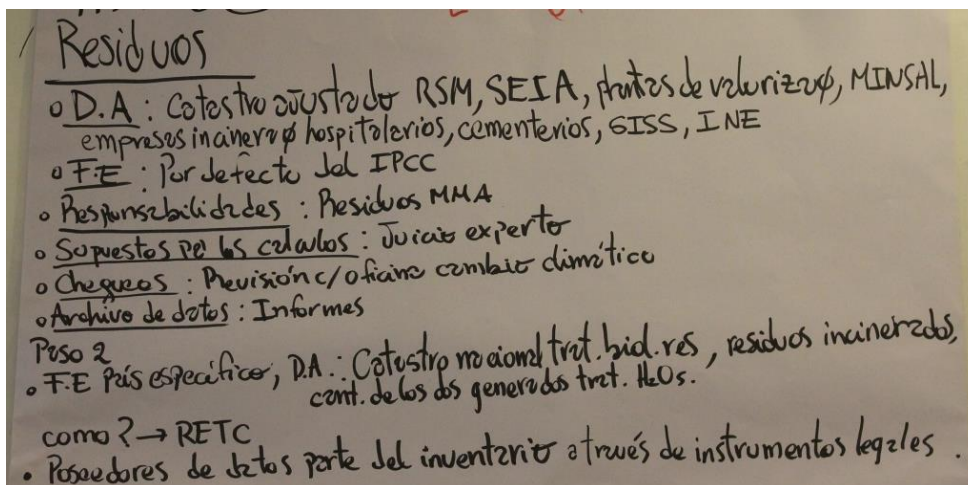 Residuos
o D.A : Catastro ajustado RSM, SEIA, plantas de valorizaφ, MINSAL,
empresas incineraφ hospitalarios, cementerios, SISS, INE
o F.E : Por defecto del IPCC
o Responsabilidades : Residuos MMA
o Supuestos pa' los calculos : Juicio experto
o Chequeos : Revisión c/ oficina cambio climático
o Archivo de datos : Informes
Paso 2
• F.E País específico, D.A : Catastro nacional trat. biol. res, residuos incinerados,
cant. de lodos generados trat. H2Os.
como? → RETC
• Poseedores de datos parte del inventario a través de instrumentos legales.